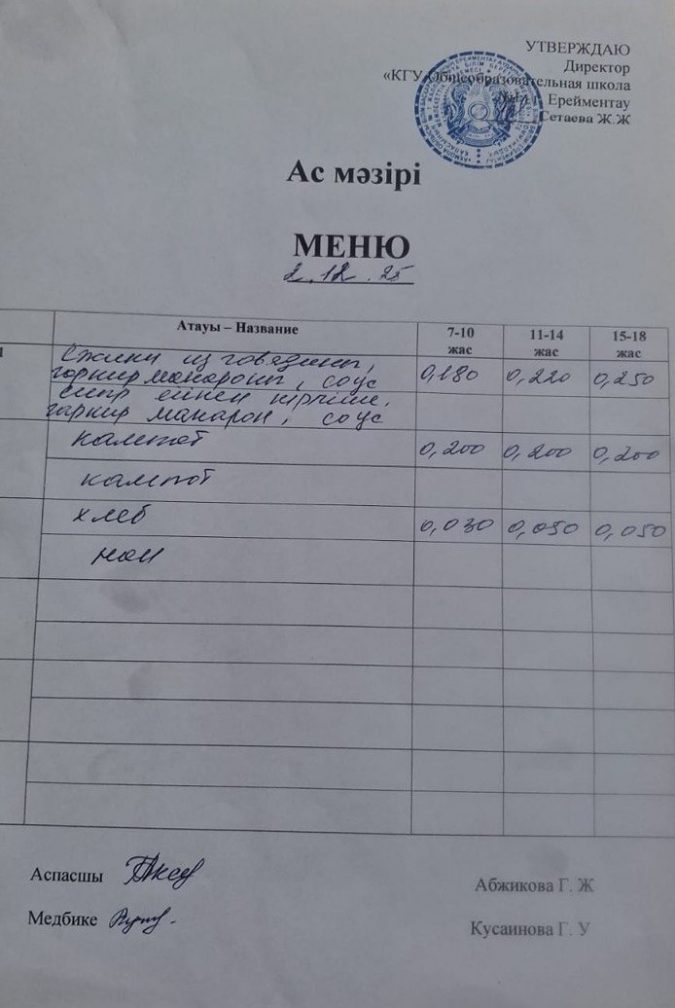 УТВЕРЖДАЮ
Директор
«КГУ Общеобразовательная школа
Ерейментау
Сетаева Ж.Ж
Ас мәзірі
МЕНЮ
2.12.25
Атауы – Название 7-10 жас 11-14 жас 15-18 жас
из говядины, 0,180 0,220 0,250
гарнир макароны, соус
сиыр етінен
гарнир макарон, соус
компот 0,200 0,200 0,200
компот
хлеб 0,030 0,050 0,050
нан
Аспасшы Абжикова Г. Ж
Медбике Кусаинова Г. У